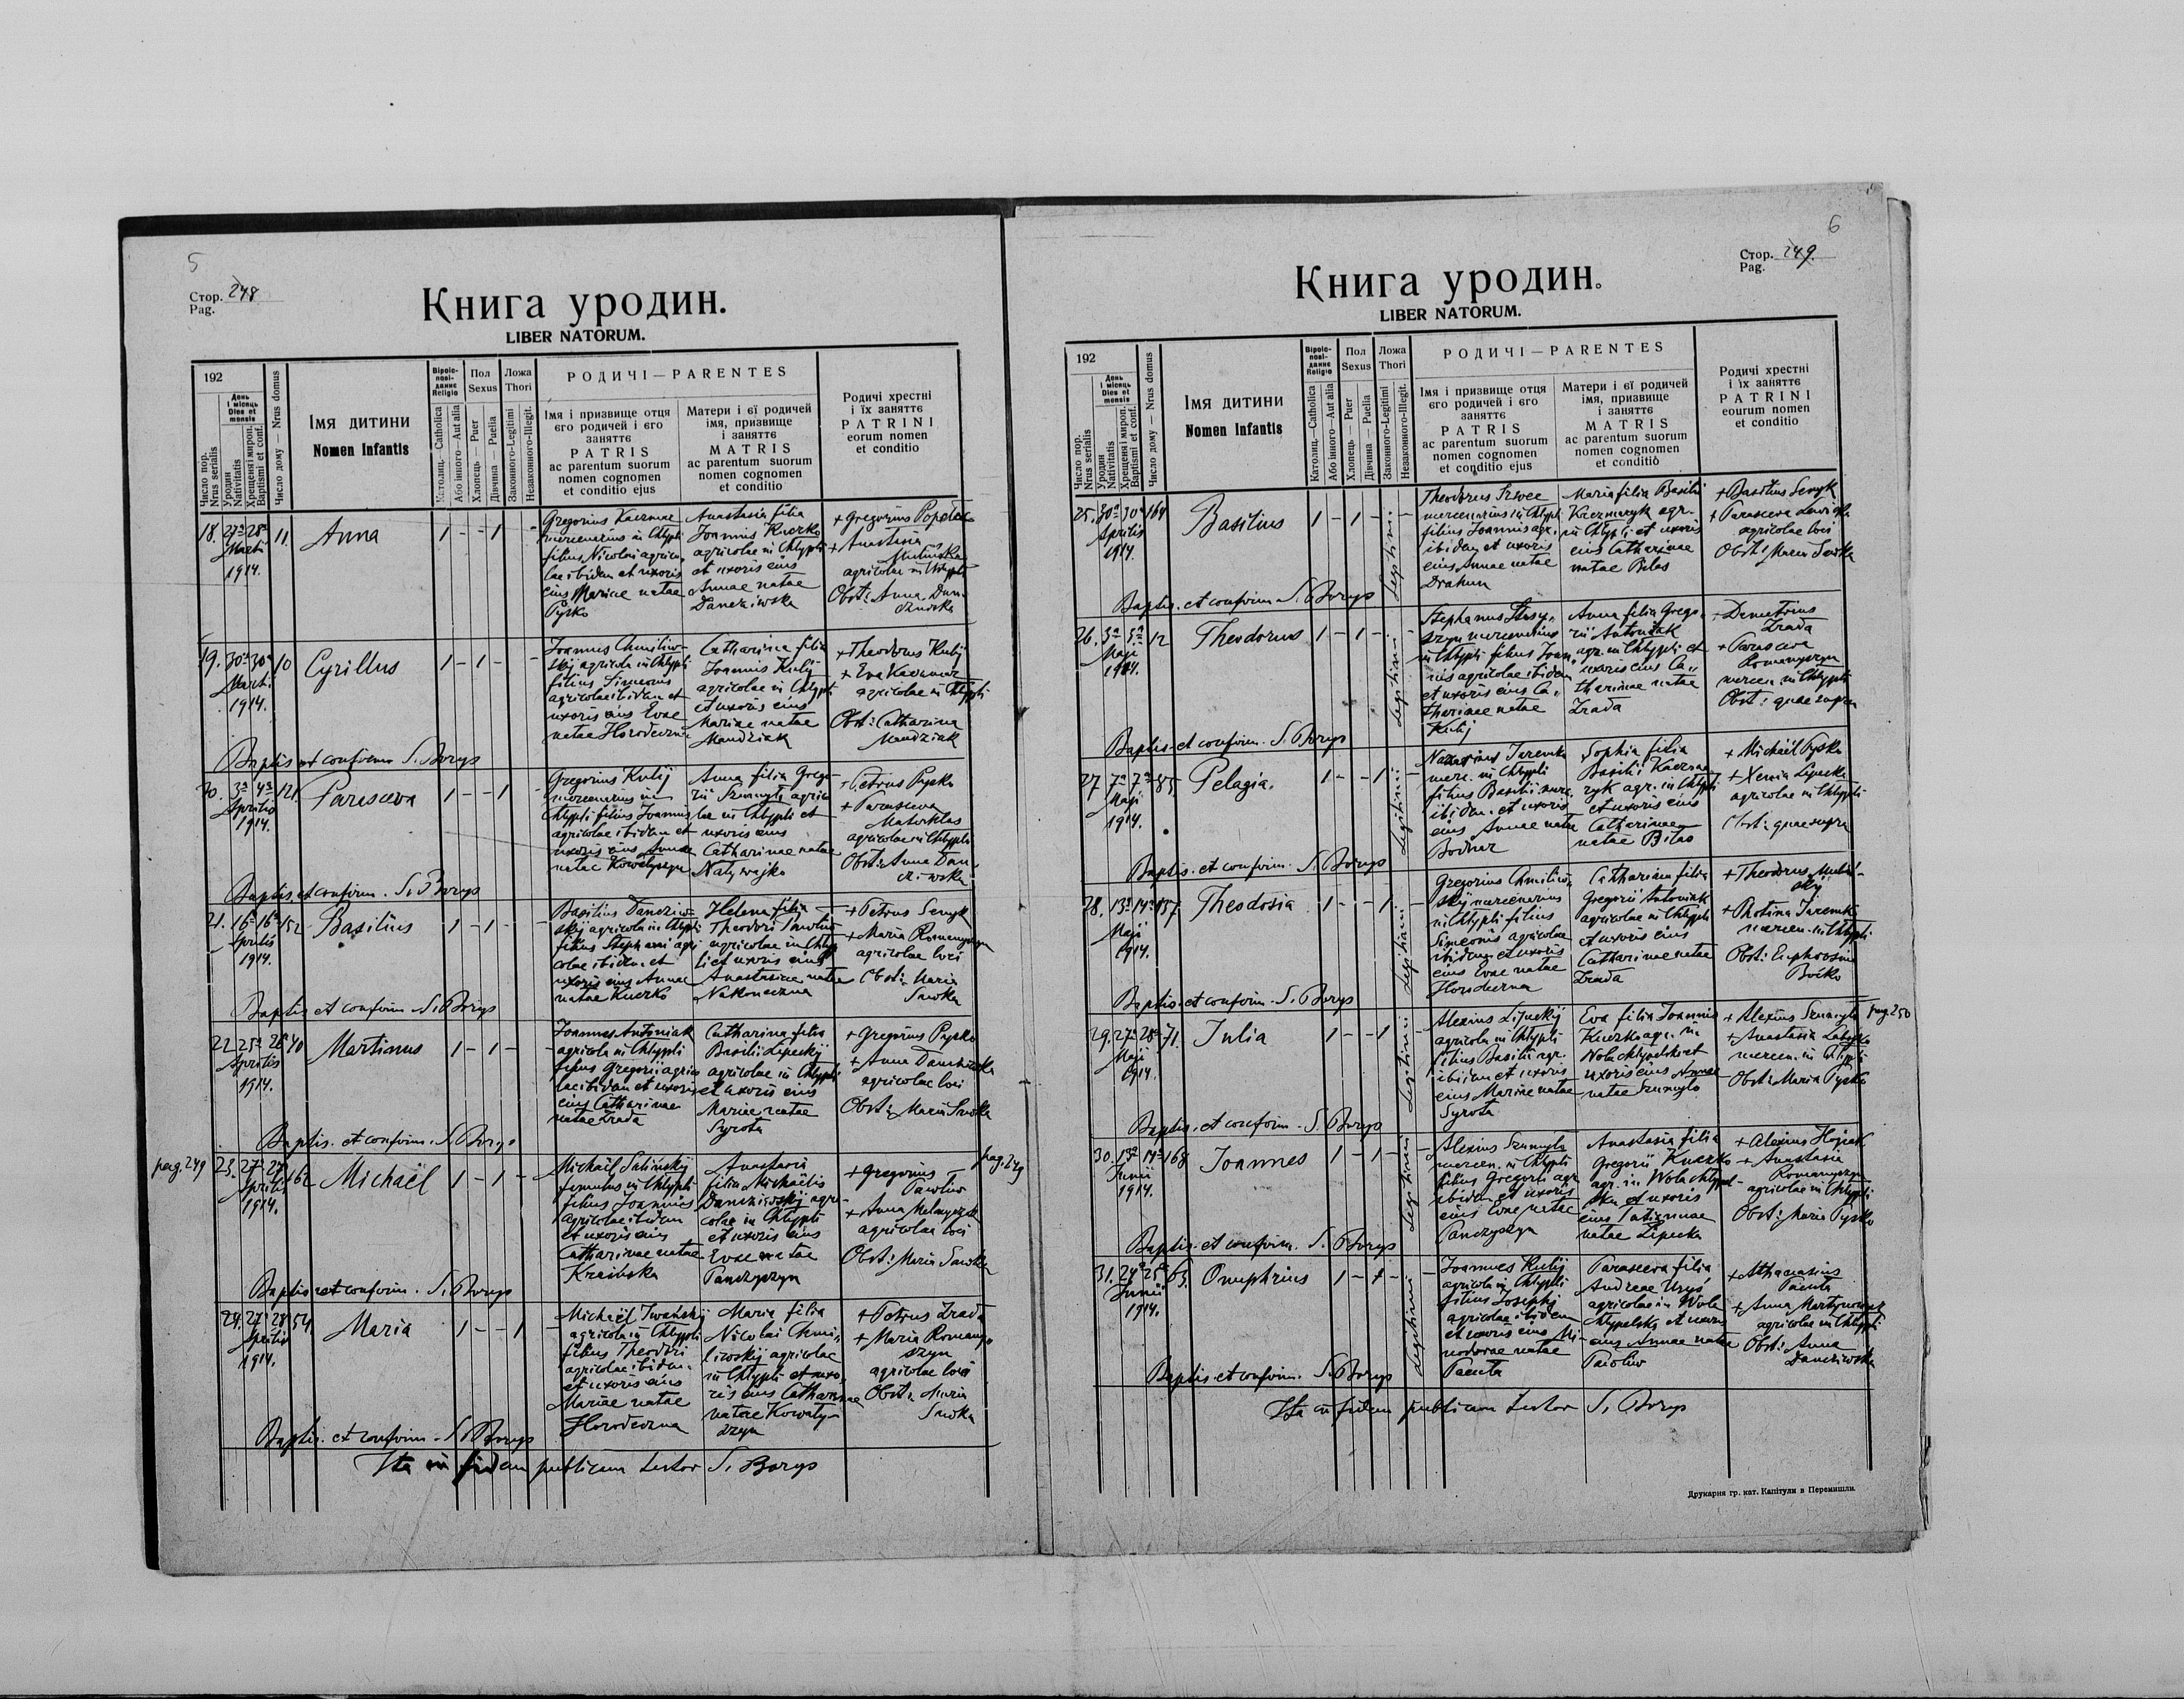 5
Стор. 248
Pag.
Книга уродин.
LIBER NATORUM.
192
Число пор.
Nrus serialis
День
і місяць
Dies et
mensis
Уродин
Nativitatis
Хрещеня і миропп.
Baptismi et conf.
Число дому — Nrus domus
Імя дитини
Nomen Infantis
Католиц.—Catholica
Або інного—Aut alia
Пол
Sexus
Хлопець — Puer
Дівчина — Puella
Ложа
Thori
Законного-Legitimi
Незаконного-Illegit.
РОДИЧІ — PARENTES
Імя і призвище отця
єго родичей і єго
заняттє
PATRIS
ac parentum suorum
nomen cognomen
et conditio ejus
Матери і єї родичей
імя, призвище
і заняттє
MATRIS
ac parentum suorum
nomen cognomen
et conditio
Родичі хрестні
і їх заняттє
PATRINI
eorum nomen
et conditio
18. 27ª 28ª
Marti
1914.
11.
Anna
1 - - 1 -
Gregorius Kaczmar
mercenarius in Chlypli
filius Nicolai agrico
lae ibidem et uxoris
eius Mariae natae
Pysko
Anastasia filia
Joannis Kuczko
agricolae in Chlypli
et uxoris eius
Annae natae
Dancziwska
+ Gregorius
+ Anastasia
agricolae in Chlypli
Obst: Anna Dan
cziwska
19. 30ª 30ª
Marti
1914.
10
Cyrillus
1 - 1 -
Joannes Chmiliw-
skij agricola in Chlypli
filius Simeonis
agricolae ibidem et
uxoris eius Evae
natae Horodeczna
Catharina filia
Joannis Kulij
agricolae in Chlypli
et uxoris eius
Mariae natae
Mandziak
+ Theodorus Kulij
+ Eva Kaczmar
agricolae in Chlypli
Obst: Catharina
Mandziak
Baptis. et confirm S. Borys
20. 3ª 4ª
Aprilis
1914.
121.
Parasceva
1 - - 1
Gregorius Kulij
mercenarius in
Chlypli filius Joannis
agricolae ibidem et
uxoris eius Annae
natae Kowalyszyn
Anna filia Grego-
rii Szumylo agrico
lae in Chlypli et
uxoris eius
Catharinae natae
Natywajko
+ Petrus Pysko
+ Parasceva
agricolae in Chlypli
Obst: Anna Dan
cziwska
Baptis. et confirm. S. Borys
21. 16ª 16ª
Aprilis
1914.
152
Basilius
1 - 1 -
Basilius Dancziw-
skij agricola in Chlypli
filius Stephani agri
colae ibidem et
uxoris eius Annae
natae Kuczko
Helena filia
Theodori Pawliw
agricolae in Chlyp
li et uxoris eius
Anastasiae natae
Nakoneczna
+ Petrus Senyk
+ Maria Romanyszyn
agricolae loci
Obst: Maria
Sawka
Baptis. et confirm S. Borys
22. 25ª 26ª
Aprilis
1914.
40
Martinus
1 - 1 -
Joannes Antoniak
agricola in Chlypli
filius Gregorii agrico
lae ibidem et uxoris
eius Catharinae
natae Zrada
Catharina filia
Basilii Lipeckij
agricolae in Chlypli
et uxoris eius
Mariae natae
Syrota
+ Gregorius Pysko
+ Anna Dancziwska
agricolae loci
Obst: Maria Sawka
Baptis. et confirm. S. Borys
pag. 249
23. 27ª 27ª
Aprilis
1914.
162
Michaël
1 - 1 -
Michaël Salinskij
famulus in Chlypli
filius Joannis
agricolae ibidem
et uxoris eius
Catharinae natae
Krasinska
Anastasia
filia Michaëlis
Dancziwskij agri-
colae in Chlypli
et uxoris eius
Evae natae
Panczyszyn
+ Gregorius
Pawliw
+ Anna
agricolae loci
Obst: Maria Sawka
pag. 249
Baptis. et confirm. S. Borys
24. 27ª 28ª
Aprilis
1914.
54.
Maria
1 - - 1
Michaël Iwanskij
agricola in Chlypli
filius Theodori
agricolae ibidem
et uxoris eius
Mariae natae
Horodeczna
Maria filia
Nicolai Chmi-
liwskij agricolae
in Chlypli et uxo-
ris eius Catharinae
natae Kowaly-
szyn
+ Petrus Zrada
+ Maria Romany-
szyn
agricolae loci
Obst: Maria
Sawka
Baptis. et confirm. S. Borys
Ita in fidem publicam testor S. Borys
6
Стор. 249.
Pag.
Книга уродин.
LIBER NATORUM.
192
Число пор.
Nrus serialis
День
і місяць
Dies et
mensis
Уродин
Nativitatis
Хрещеня і миропп.
Baptismi et conf.
Число дому — Nrus domus
Імя дитини
Nomen Infantis
Католиц.—Catholica
Або інного—Aut alia
Пол
Sexus
Хлопець — Puer
Дівчина — Puella
Ложа
Thori
Законного-Legitimi
Незаконного-Illegit.
РОДИЧІ — PARENTES
Імя і призвище отця
єго родичей і єго
заняттє
PATRIS
ac parentum suorum
nomen cognomen
et conditio ejus
Матери і єї родичей
імя, призвище
і заняттє
MATRIS
ac parentum suorum
nomen cognomen
et conditio
Родичі хрестні
і їх заняттє
PATRINI
eourum nomen
et conditio
25. 30ª 30ª
Aprilis
1914.
164
Basilius
1 - 1 -
Legitimi
Theodorus Szwec
mercenarius in Chlypli
filius Joannis agr.
ibidem et uxoris
eius Annae natae
Drahun
Maria filia Basilii
Kaczmaryk agr.
in Chlypli et uxoris
eius Catharinae
natae Bilas
+ Basilius Senyk
+ Parasceva
agricolae loci
Obst: Maria Sawka
Baptis. et confirm S. Borys
26. 3ª 3ª
Maji
1914.
12
Theodorus
1 - 1 -
Legitimi
Stephanus
mercenarius
in Chlypli filius Joan
nis agricolae ibidem
et uxoris eius Ca-
tharinae natae
Kulij
Anna filia Grego-
rii Antoniak
agr. in Chlypli et
uxoris eius Ca-
tharinae natae
Zrada
+ Demetrius
Zrada
+ Parasceva
Romanyszyn
mercen in Chlypli
Obst: quae supra
Baptis. et confirm. S. Borys
27 7ª 7ª
Maji
1914.
85.
Pelagia.
1 - - 1
Legitimi
Nazarius Jaremko
merc. in Chlypli
filius Basilii merc.
ibidem et uxoris
eius Annae natae
Bodnar
Sophia filia
Basilii Kaczma
ryk agr. in Chlypli
et uxoris eius
Catharinae
natae Bilas
+ Michaël Pysko
+ Xenia Lipecka
agricolae in Chlypli
Obst: quae supra
Baptis. et confirm. S. Borys
28. 13ª 14ª
Maji
1914.
137
Theodosia
1 - - 1
Legitimi
Gregorius Chmiliw-
skij mercenarius
in Chlypli filius
Simeonis agricolae
ibidem et uxoris
eius Evae natae
Horodeczna
Catharina filia
Gregorii Antoniak
agricolae in Chlypli
et uxoris eius
Catharinae natae
Zrada
+ Theodorus
+ Photina Jaremko
mercen. in Chlypli
Obst: Euphrosina
Bocko
Baptis. et confirm. S. Borys
29. 27ª 28ª
Maji
1914.
71.
Julia
1 - - 1
Legitimi
Alexius Lipeckij
agricola in Chlypli
filius Basilii agr.
ibidem et uxoris
eius Mariae natae
Syrota
Eva filia Joannis
Kuczko agr. in
Wola chlypelska et
uxoris eius Annae
natae Szumylo
+ Alexius Szumylo
+ Anastasia
mercen. in Chlypli
Obst: Maria Pysko
pag. 250
Baptis. et confirm. S. Borys
30. 13ª 14ª
Junii
1914.
168
Joannes
1 - 1 -
Legitimi
Alexius Szumylo
mercen. in Chlypli
filius Gregorii agr.
ibidem et uxoris
eius Evae natae
Panczyszyn
Anastasia filia
Gregorii Kuczko
agr. in Wola Chlypel-
ska et uxoris
eius Tatiannae
natae Lipecka
+ Alexius
+ Anastasia
Romanyszyn
agricolae in Chlypli
Obst: Maria Pysko
Baptis. et confirm. S. Borys
31. 24ª 25ª
Junii
1914.
63.
Onuphrius
1 - 1 -
Legitimi
Joannes Kulij
agricola in Chlypli
filius Josephi
agricolae ibidem
et uxoris eius Mi-
nodorae natae
Paenta
Parasceva filia
Andreae
agricolae in Wola
Chlypelska et uxoris
eius Annae natae
Pawliw
+ Athanasius
Paenta
+ Anna
agricolae in Chlypli
Obst: Anna
Dancziwska
Baptis. et confirm. S. Borys
Ita in fidem publicam testor S. Borys
Друкарня гр. кат. Капітули в Перемишли.